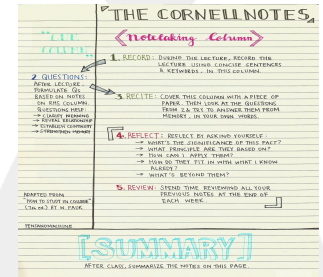 THE CORNELL NOTES
"CUE COLUMN"
Notetaking Column
1. RECORD: DURING THE LECTURE, RECORD THE
LECTURE USING CONCISE SENTENCES
& KEYWORDS. IN THIS COLUMN.
2. QUESTIONS:
AFTER LECTURE,
FORMULATE QS
BASED ON NOTES
ON RHS COLUMN.
QUESTIONS HELP:
→ CLARIFY MEANING
→ REVEAL RELATIONSHIP
→ ESTABLISH CONTINUITY
→ STRENGTHEN MEMORY
3. RECITE: COVER THIS COLUMN WITH A PIECE OF
PAPER. THEN LOOK AT THE QUESTIONS
FROM 2 & TRY TO ANSWER THEM FROM
MEMORY. IN YOUR OWN WORDS.
4. REFLECT: REFLECT BY ASKING YOURSELF:
→ WHAT'S THE SIGNIFICANCE OF THIS FACT?
→ WHAT PRINCIPLE ARE THEY BASED ON?
→ HOW CAN I APPLY THEM?
→ HOW DO THEY FIT IN WITH WHAT I KNOW
ALREADY?
→ WHAT'S BEYOND THEM?
5. REVIEW: SPEND TIME REVIEWING ALL YOUR
PREVIOUS NOTES AT THE END OF
EACH WEEK.
ADAPTED FROM
"HOW TO STUDY IN COLLEGE"
(7th ed.) BY W. PAUK
PENSANDMACHINE
[SUMMARY]
AFTER CLASS, SUMMARIZE THE NOTES ON THIS PAGE.